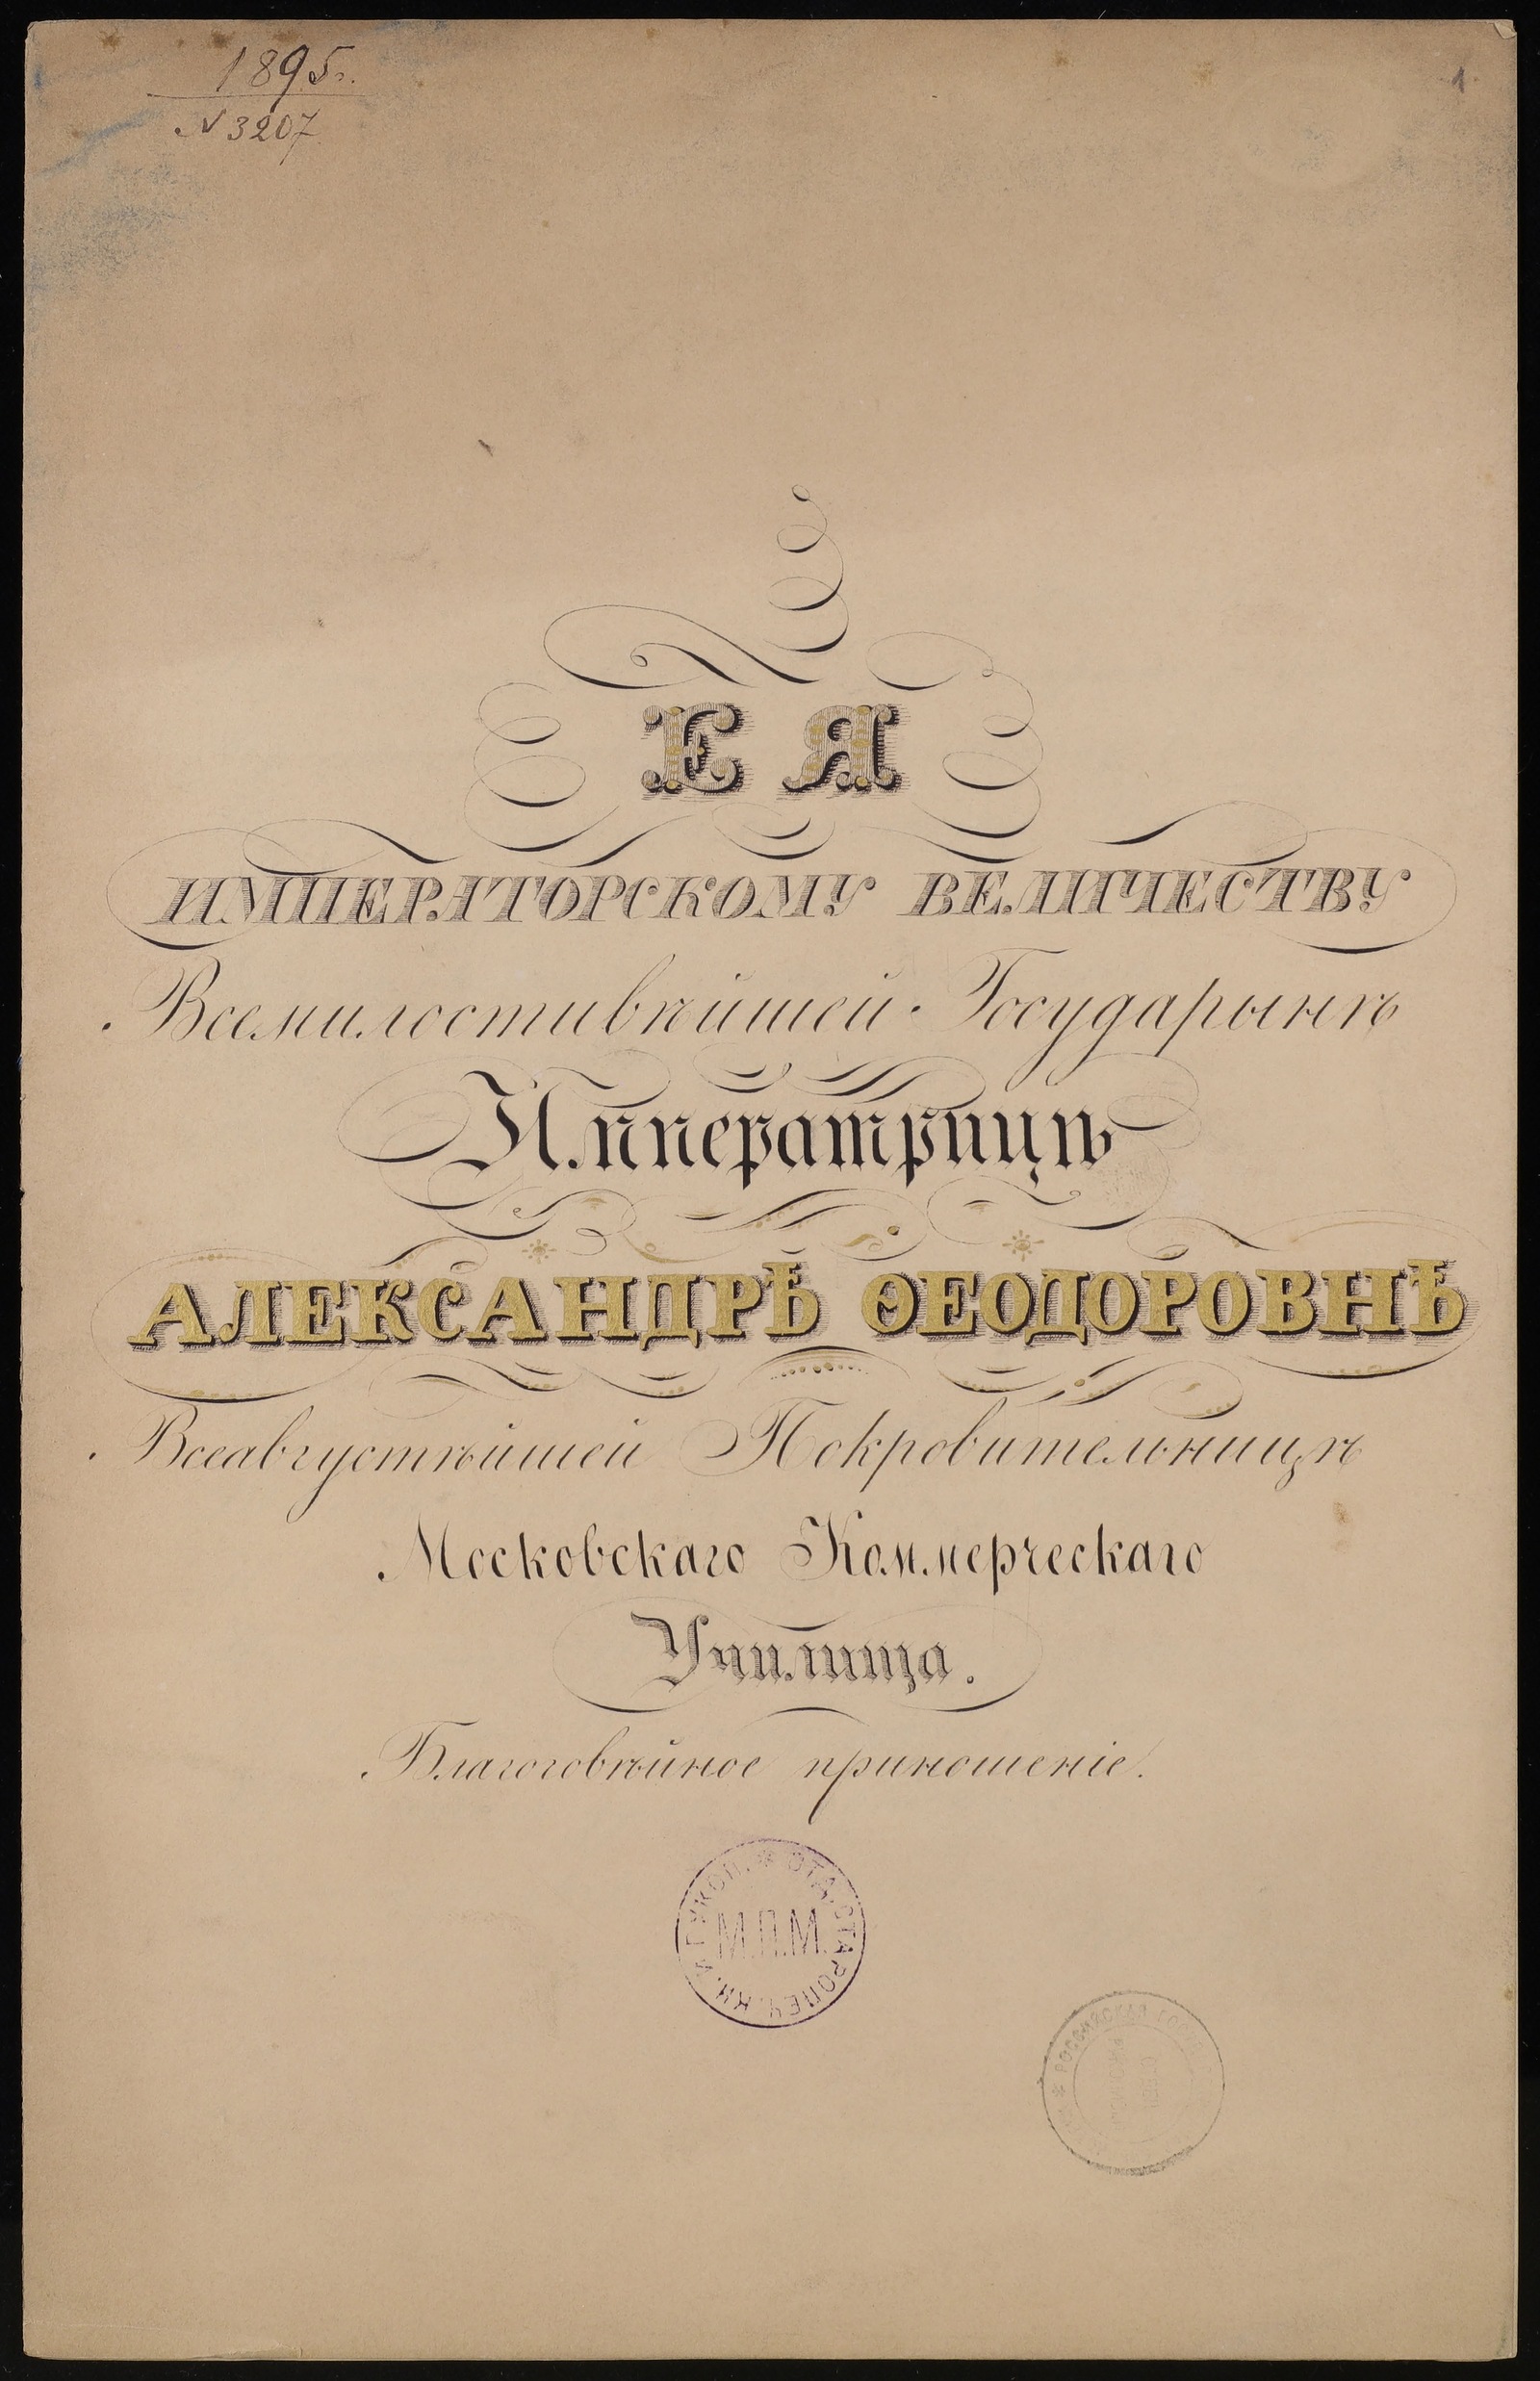 1895 г.
N 3207
1
ЕЯ
ИМПЕРАТОРСКОМУ ВЕЛИЧЕСТВУ
Всемилостивѣйшей Государынѣ
Императрицѣ
АЛЕКСАНДРѢ ѲЕОДОРОВНѢ
Всеавгустѣйшей Покровительницѣ
Московскаго Коммерческаго
Училища.
Благоговѣйное приношеніе.
* ОТД. СТАРОПЕЧ. КН. И РУКОП.
М.П.М.
* РОССИЙСКАЯ